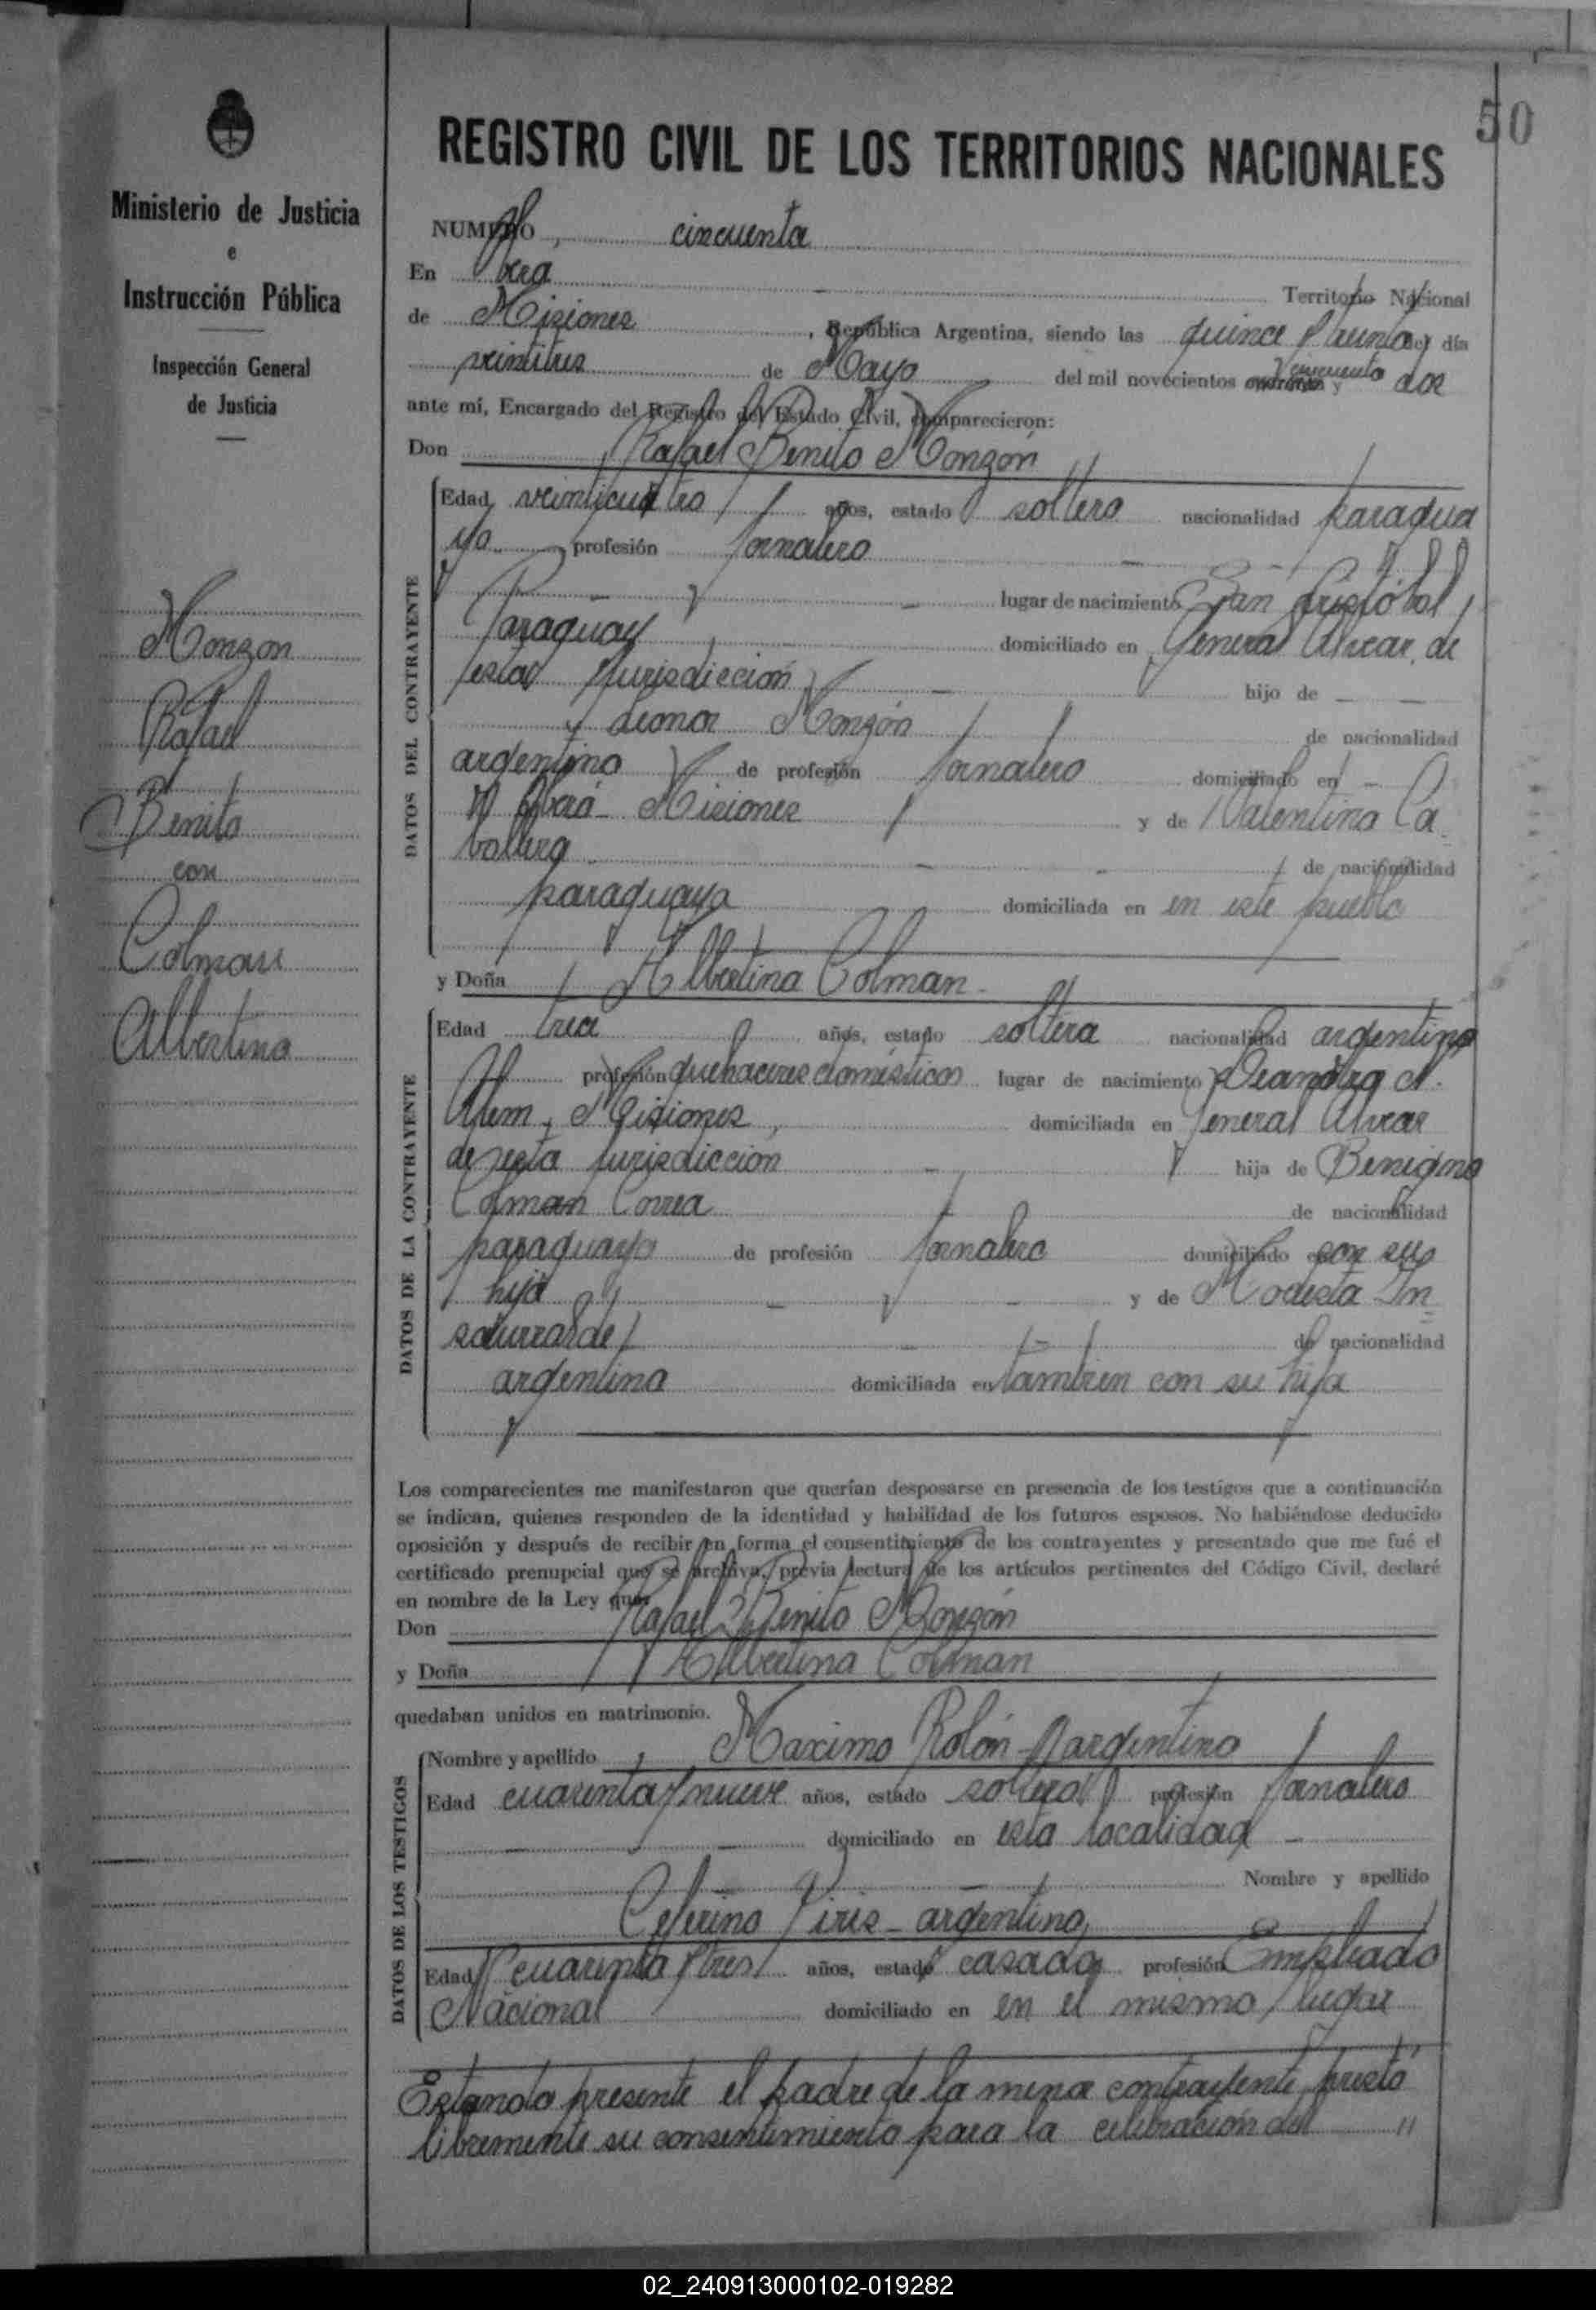 50
REGISTRO CIVIL DE LOS TERRITORIOS NACIONALES
Ministerio de Justicia
e
Instrucción Pública
Inspección General
de Justicia
Monzon
Rafael
Benito
con
Colman
Albertina
NUMERO cincuenta
En Oberá Territorio Nacional
de Misiones, República Argentina, siendo las quince y treinta del día
veintitres de Mayo del mil novecientos cincuenta y dos
ante mí, Encargado del Registro del Estado Civil, comparecieron:
Don Rafael Benito Monzón
DATOS DEL CONTRAYENTE
Edad veinticuatro años, estado soltero nacionalidad paragua
yo profesión Jornalero
lugar de nacimiento San Cristóbal,
Paraguay domiciliado en General Alvear, de
esta Jurisdiccion hijo de
y Leonor Monzón de nacionalidad
argentino de profesión Jornalero domiciliado en
Misiones y de Valentina Ca
ballero de nacionalidad
paraguaya domiciliada en en este pueblo
y Doña Albertina Colman
DATOS DE LA CONTRAYENTE
Edad años, estado soltera nacionalidad argentina
profesión quehaceres domésticos lugar de nacimiento Leandro N.
Alem, Misiones, domiciliada en General Alvear
de esta Jurisdiccion hija de Benigno
Colman Correa de nacionalidad
paraguayo de profesión Jornalero domiciliado en con su
hija y de Modesta In
saurralde de nacionalidad
argentina domiciliada en tambien con su hija
Los comparecientes me manifestaron que querían desposarse en presencia de los testigos que a continuación
se indican, quienes responden de la identidad y habilidad de los futuros esposos. No habiéndose deducido
oposición y después de recibir en forma el consentimiento de los contrayentes y presentado que me fué el
certificado prenupcial que se archiva, previa lectura de los artículos pertinentes del Código Civil, declaré
en nombre de la Ley que:
Don Rafael Benito Monzón
y Doña Albertina Colman
quedaban unidos en matrimonio.
DATOS DE LOS TESTIGOS
Nombre y apellido Maximo Rolón - argentino
Edad cuarenta y nueve años, estado soltero profesión Jornalero
domiciliado en esta localidad
Nombre y apellido
Ceferino Piris - argentino
Edad cuarenta y tres años, estado casado profesión Empleado
Nacional domiciliado en en el mismo lugar
Estando presente el padre de la menor contrayente prestó
libremente su consentimiento para la celebración del "
02_240913000102-019282